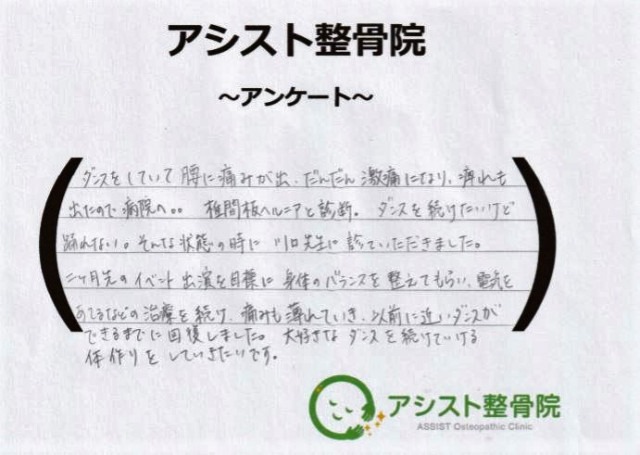 アシスト整骨院
～アンケート～
ダンスをしていて腰に痛みが出、だんだん激痛になり、痺れも
出たので病院へ。。 椎間板ヘルニアと診断。 ダンスを続けたいけど
踊れない。そんな状態の時に 川口先生に診ていただきました。
二ヶ月先のイベント出演を目標に 身体のバランスを整えてもらい、電気を
あてるなどの治療を続け、痛みも薄れていき、以前に近いダンスが
できるまでに回復しました。 大好きなダンスを続けていける
体作りをしていきたいです。
アシスト整骨院
ASSIST Osteopathic Clinic